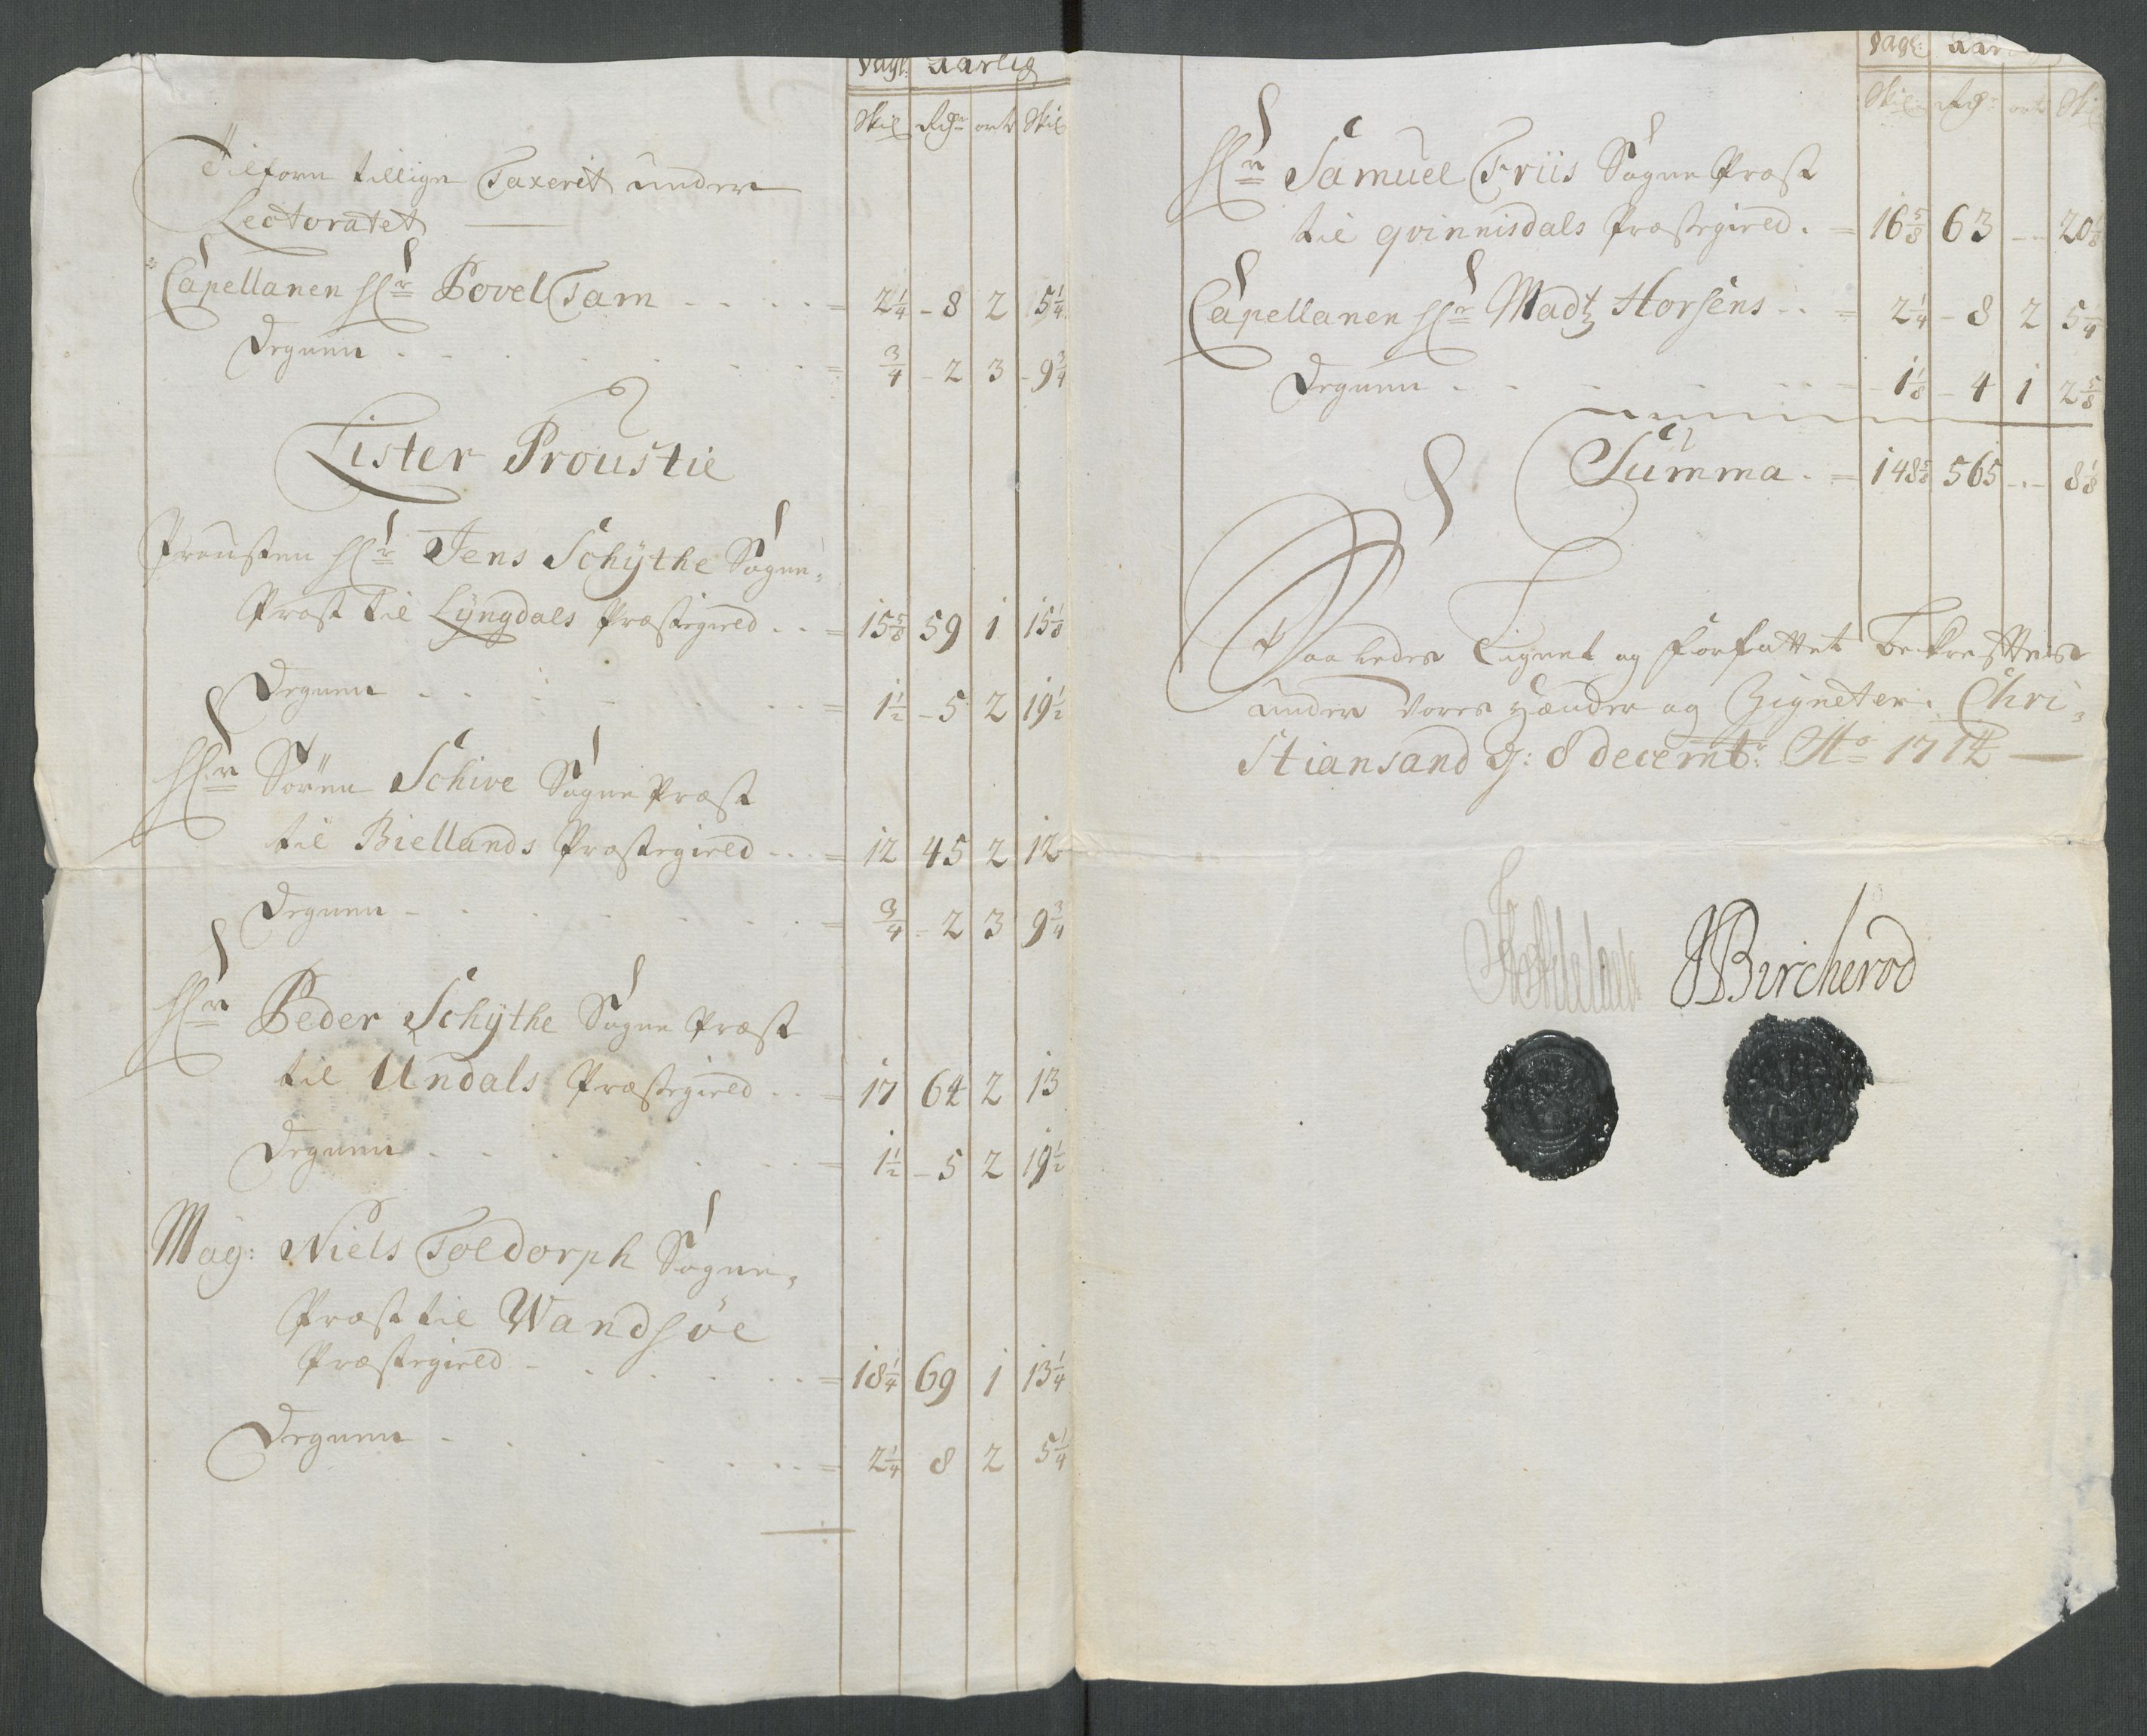 Dagl: Aarlig
Skil Rdr ort Skil
Tilforn tillige Taxerit under
Lectoratet
Capellanen Hr Povel Tam = 2 1/4 - 8 2 5 1/4
Degnen = 3/4 - 2 3 - 9 3/4
Lister Proustie
Prousten Hr Jens Schÿthe Sogne-
Præst til Lÿngdals Præstegield = 15 5/8 59 1 15 1/8
Degnen = 1 1/2 - 5 2 19 1/2
Hr Sören Schive Sogne Præst
til Biellands Præstegield = 12 45 2 12
Degnen = 3/4 - 2 3 9 3/4
Hr Peder Schÿthe Sogne Præst
til Undals Præstegield = 17 64 2 13
Degnen = 1 1/2 - 5 2 19 1/2
Mag: Niels Toldorph Sogne-
Præst til Wandsöe
Præstegield = 18 1/4 69 1 13 1/4
Degnen = 2 1/4 8 2 5 1/4
Dagl:
Skil Rdr ort Skil
Hr Samuel Friis Sogne Præst
til qvinnisdals Præstegield = 16 5/8 63 - 20 1/8
Capellanen Hr Madtz Horsens = 2 1/4 - 8 2 5 1/4
Degnen = 1 1/8 - 4 1 2 5/8
Summa = 148 5/8 565 - 8 1/8
Saaledes Lignet og forfattet bekræfttes
under Vores Hænder og Zigneter. Chri-
Stiansand d: 8 decembr: Ao 1714
JBircherod